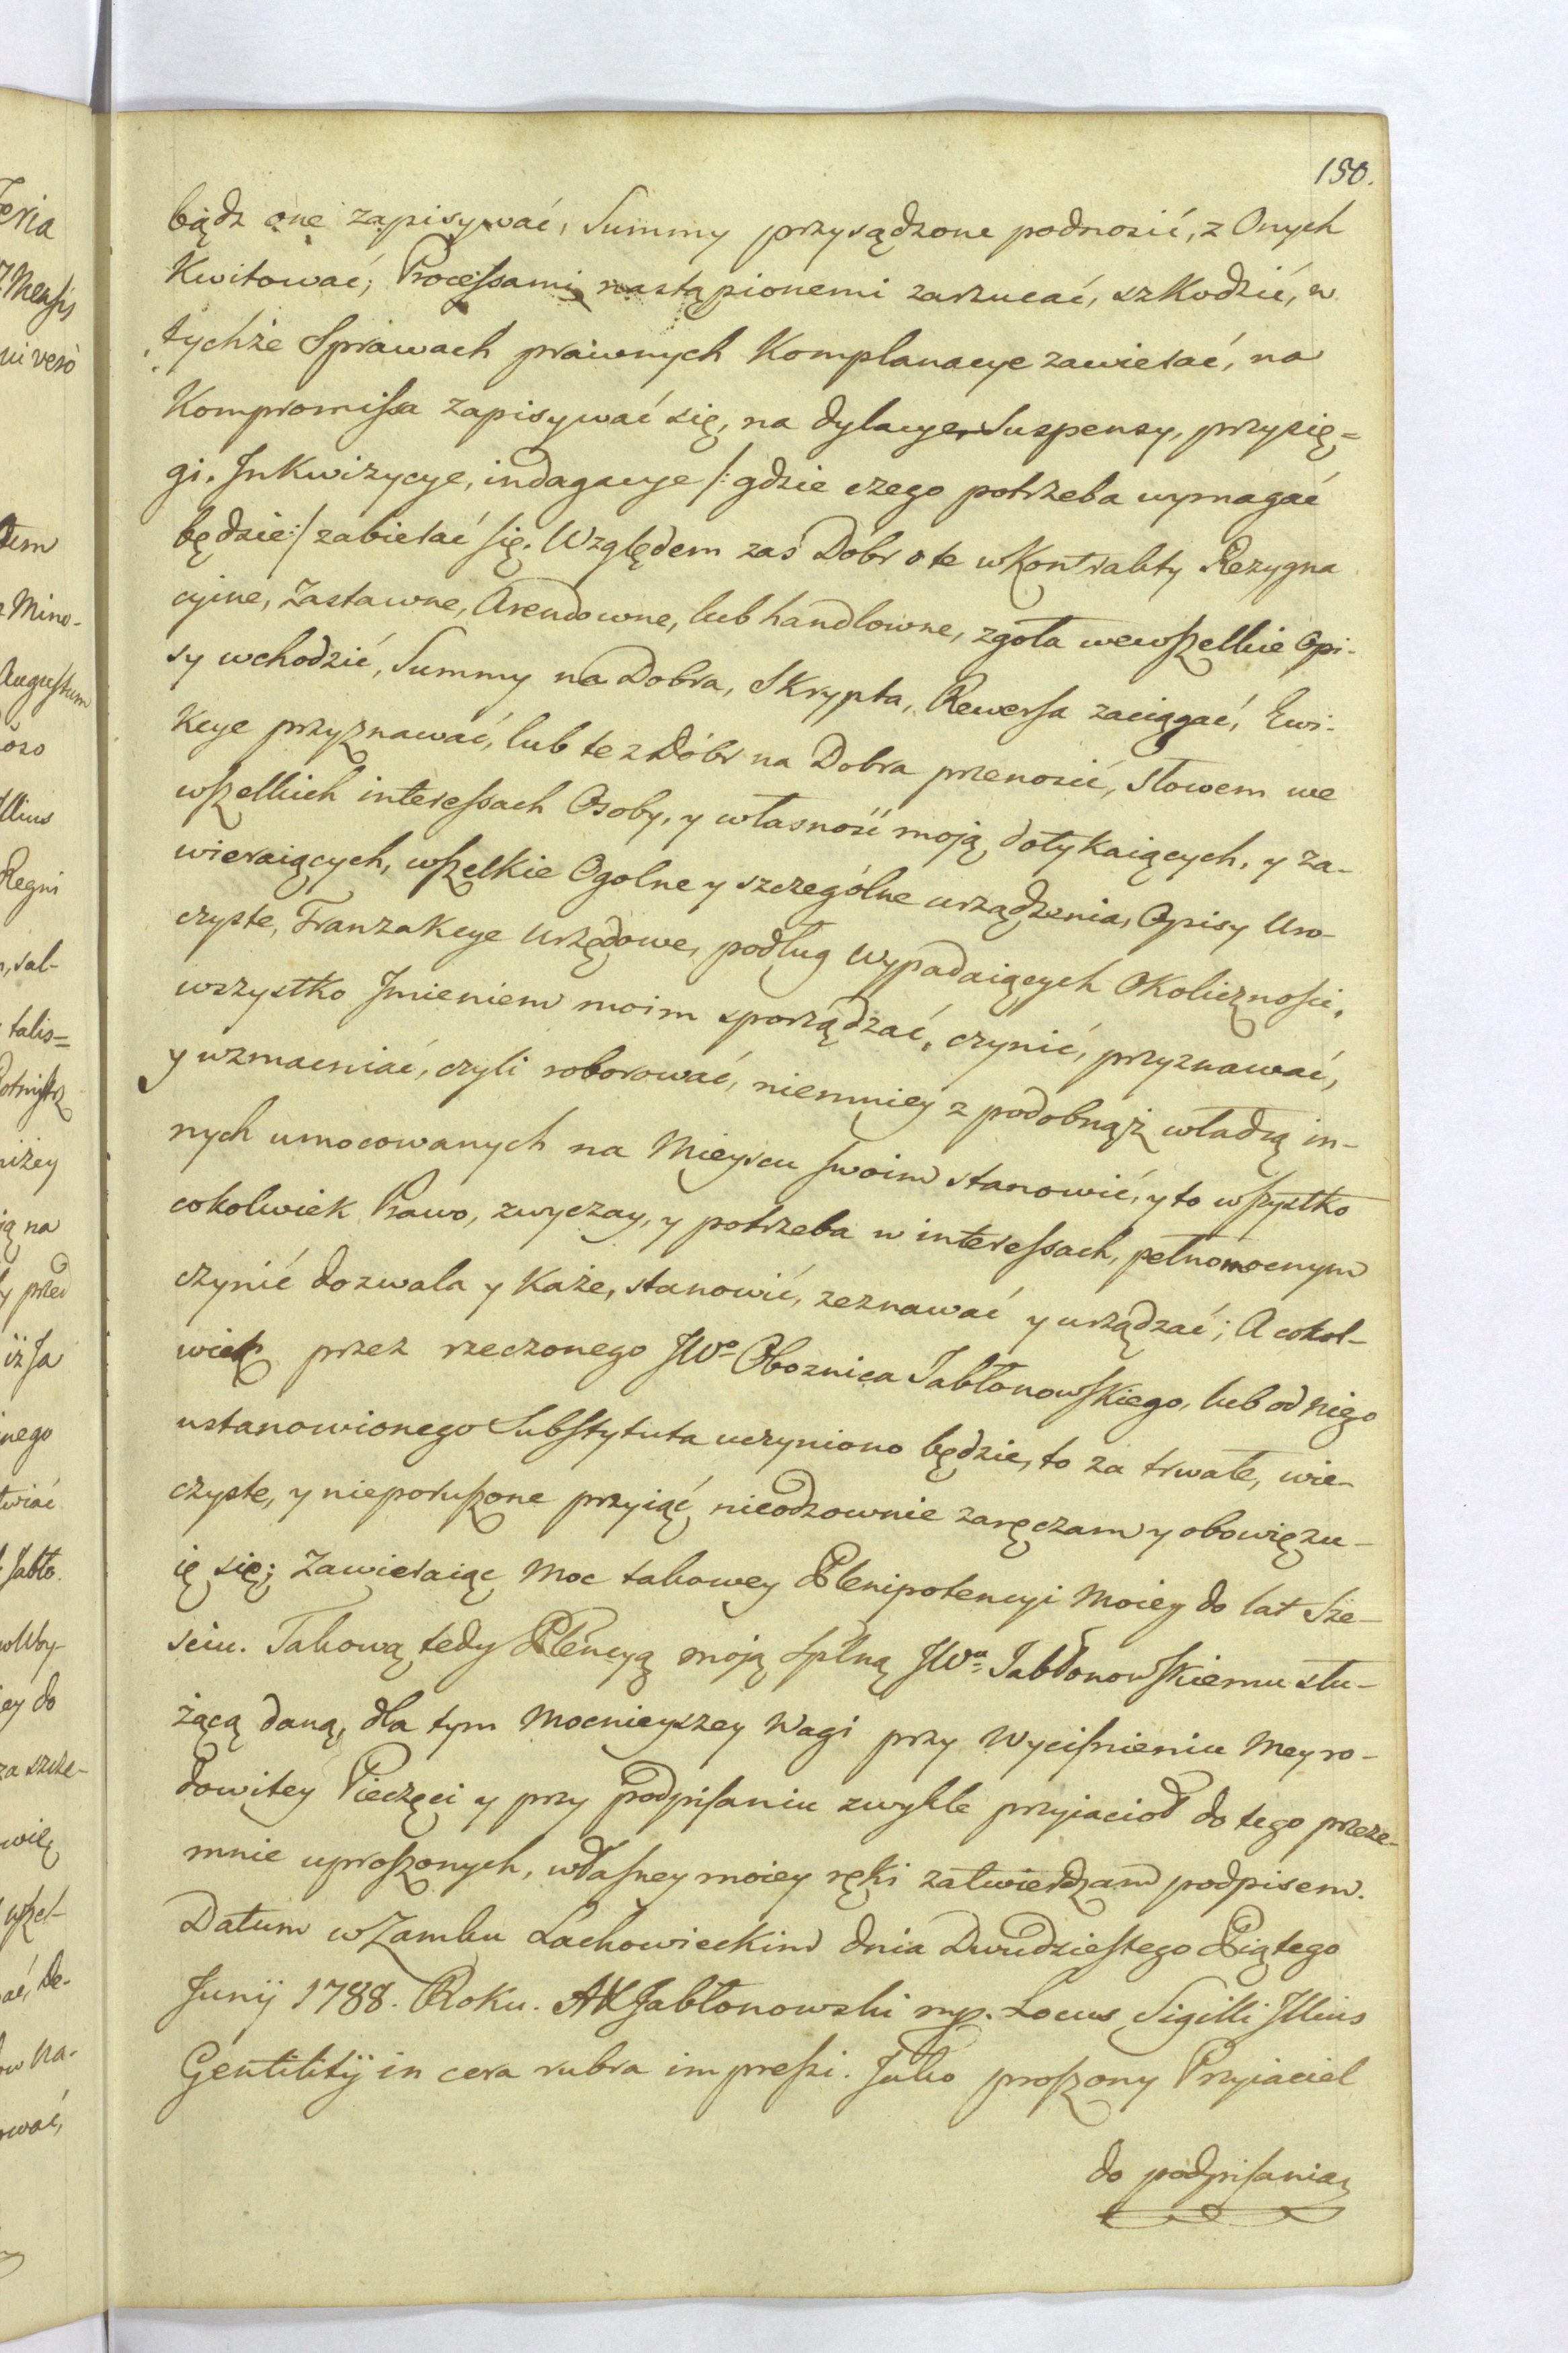 150.
bądz one zapisywać, Summy przysądzone podnosić, z Onych
Kwitować; Processami nastąpionemi zarzucać, szkodzić, w
tychże Sprawach prawnych Komplanacye zawierać, na
Kompromissa zapisywać się, na dylacye, Suspensy, przysię=
gi, Inkwizycye, indagacye /: gdzie czego potrzeba wymagać
będzie :/ zabierać się. Względem zaś Dóbr o te w Kontrakty Rezygna
cyine, Zastawne, Arendowne, lub handlowne, zgoła we wszelkie Opi-
sy wchodzić, Summy na Dobra, Skrypta, Rewersa zaciągać, Ewi-
kcye przyznawać, lub te z Dóbr na Dobra przenosić, Słowem we
wszelkich interessach Osoby, y własność moją dotykaiących, y za-
wieraiących, wszelkie Ogolne y szczególne urządzenia, Opisy Uro-
czyste, Tranzakcye Urzędowe, podług wypadaiących Okoliczności,
wszystko Imieniem moim sporządzać, czynić, przyznawać,
y wzmacniać, czyli roborować, niemniey z podobnąż władzą in-
nych umocowanych na Mieyscu swoim stanowić, y to wszystko
cokolwiek Prawo, zwyczay, y potrzeba w interessach, pełnomocnym
czynić dozwala y Każe, stanowić, zeznawać y urządzać; A cokol-
wiek przez rzeczonego JWo Oboznica Jabłonowskiego, lub od niego
ustanowionego Substytuta uczyniono będzie, to za trwałe, wie-
czyste, y nieporuszone przyiąć nieodzownie zaręczam y obowięzu-
ię się; Zawieraiąc Moc takowey Plenipotencyi Moiey do lat Sze-
sciu. Takową tedy Plencyą moją Splną JWo Jabłonowskiemu słu-
żącą daną, dla tym Mocnieyszey Wagi przy Wycisnieniu Mey ro-
dowitey Pieczęci y przy podpisaniu zwykle przyiacioł do tego przeze-
mnie uproszonych, własney moiey ręki zatwierdzam podpisem.
Datum w Zamku Lachowieckim dnia Dwudziestego Piątego
Junij 1788. Roku. AX Jabłonowski mp. Locus Sigilli Illius
Gentilitij in cera rubra impressi. Jako proszony Przyiaciel
do podpisania